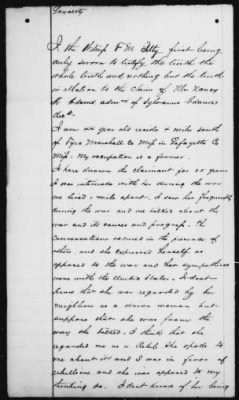 Loyalty
I the Witness F M first being
duly sworn to testify the truth the
whole truth and nothing but the truth
in relation to the Claim of Mrs Nancy
A Adams admx of Sylvanus Adams
decd.
I am years old reside 4 miles south
of Tyro Marshall Co Miſſ in Lafayette Co
Miſſ. My occupation is a farmer.
I have known the claimant for 25 years
I was intimate with her during the war
we lived 1 mile apart. I saw her frequently
during the war and we talked about the
war and its causes and progress. The
conversations occured in the presence of
others, and she expressed herself as
opposed to the war and her sympathies
were with the United States, I dont
know that she was regarded by her
neighbors as a union woman but
suppose that she was from the
way she talked. I think that she
regarded me as a Rebel. She spoke to
me about it and I was in favor of
rebellion and she was opposed to my
thinking so. I dont know of her being